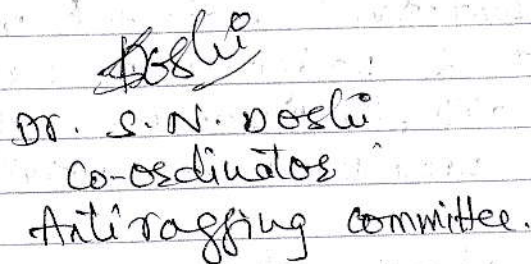 Doshi
Dr. S. N. Doshi
Co-ordinator
Antiragging committee.